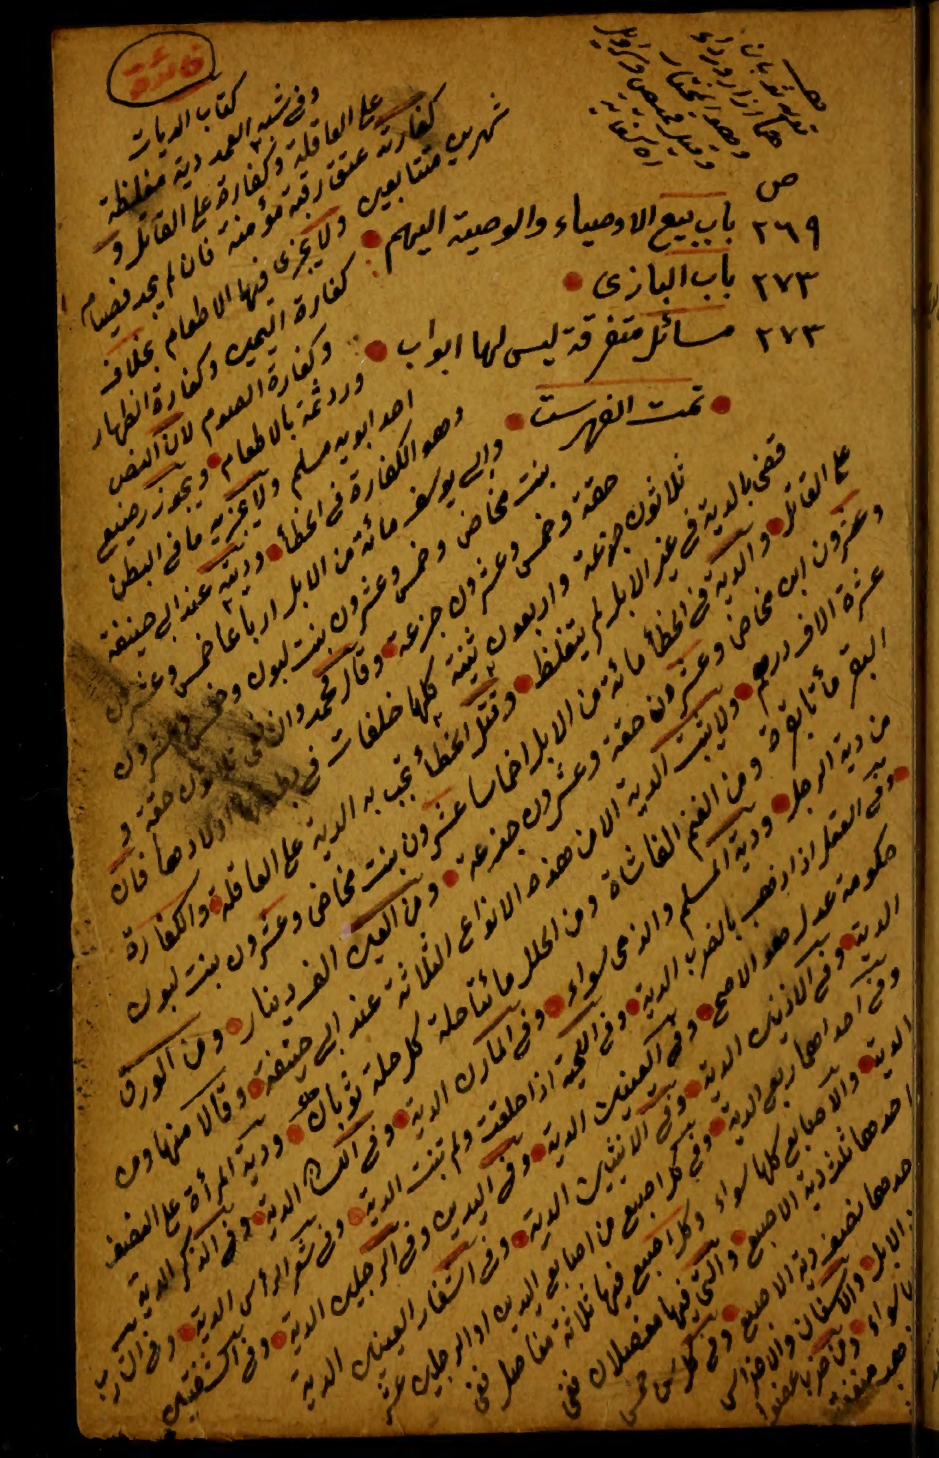 فائدة
كتاب الديات
وفي شبه العمد دية مغلظة
على العاقلة وكفارة على القاتل و
كفارته عتق رقبة مؤمنة فان لم يجد فصيام
شهرين متتابعين ولا يجزى فيها الاطعام بخلاف
كفارة اليمين وكفارة الظهار
وكفارة الصوم لان النص
ورد ثمة بالاطعام ويجوز رضيع
احد ابويه مسلم ولا يجزيه ما في البطن
وهو الكفارة في الخطأ وديته عند ابي حنيفة
وابي يوسف مائة من الابل ارباعا خمس وعشرون
بنت مخاض وخمس وعشرون بنت لبون وخمس وعشرون
حقة وخمس وعشرون جزعة وقال محمد ثلاثون حقة و
ثلاثون جزعة واربعون ثنية كلها خلفات في بطونها اولادها فان
قضى بالدية في غير الابل لم يتغلظ وقتل الخطأ تجب به الدية على العاقلة والكفارة
على القاتل والدية في الخطأ مائة من الابل اخماسا عشرون بنت مخاض وعشرون بنت لبون
وعشرون ابن مخاض وعشرون حقة وعشرون جذعة ومن العين الف دينار ومن الورق
عشرة الاف درهم ولا يثبت الدية الا من هذه الانواع الثلاثة عند ابي حنيفة وقالا منها ومن
البقر مأتا بقرة ومن الغنم الفا شاة ومن الحلل مائتا حلة كل حلة ثوبان ودية المرأة على النصف
من دية الرجل ودية المسلم والذمى سواء وفي المارن الدية وفي اللسان الدية وفي الذكر الدية
وفي العقل اذا ذهب بالضرب الدية وفي اللحية اذا حلقت ولم تنبت الدية وفي شعر الرأس الدية وفي الشارب
حكومة عدل هو الاصح وفي العينين الدية وفي اليدين وفي الرجلين الدية وفي الشفتين
الدية وفي الاذنين الدية وفي الانثيين الدية وفي اشفار العينين الدية
وفي احداهما ربع الدية وفي كل اصبع من اصابع اليدين او الرجلين عشر
الدية والاصابع كلها سواء وكل اصبع فيها ثلاثة مفاصل ففى
احدها ثلث دية الاصبع والتى فيها مفصلان ففى
احدهما نصف دية الاصبع وفي كل سن خمس
من الابل والاسنان والاضراس
سواء ومن ضرب عضوا
ص
٢٦٩ باب بيع الاوصياء والوصية اليهم
٢٧٣ باب البازى
٢٧٣ مسائل متفرقة ليس لها ابواب
تمت الفهرست